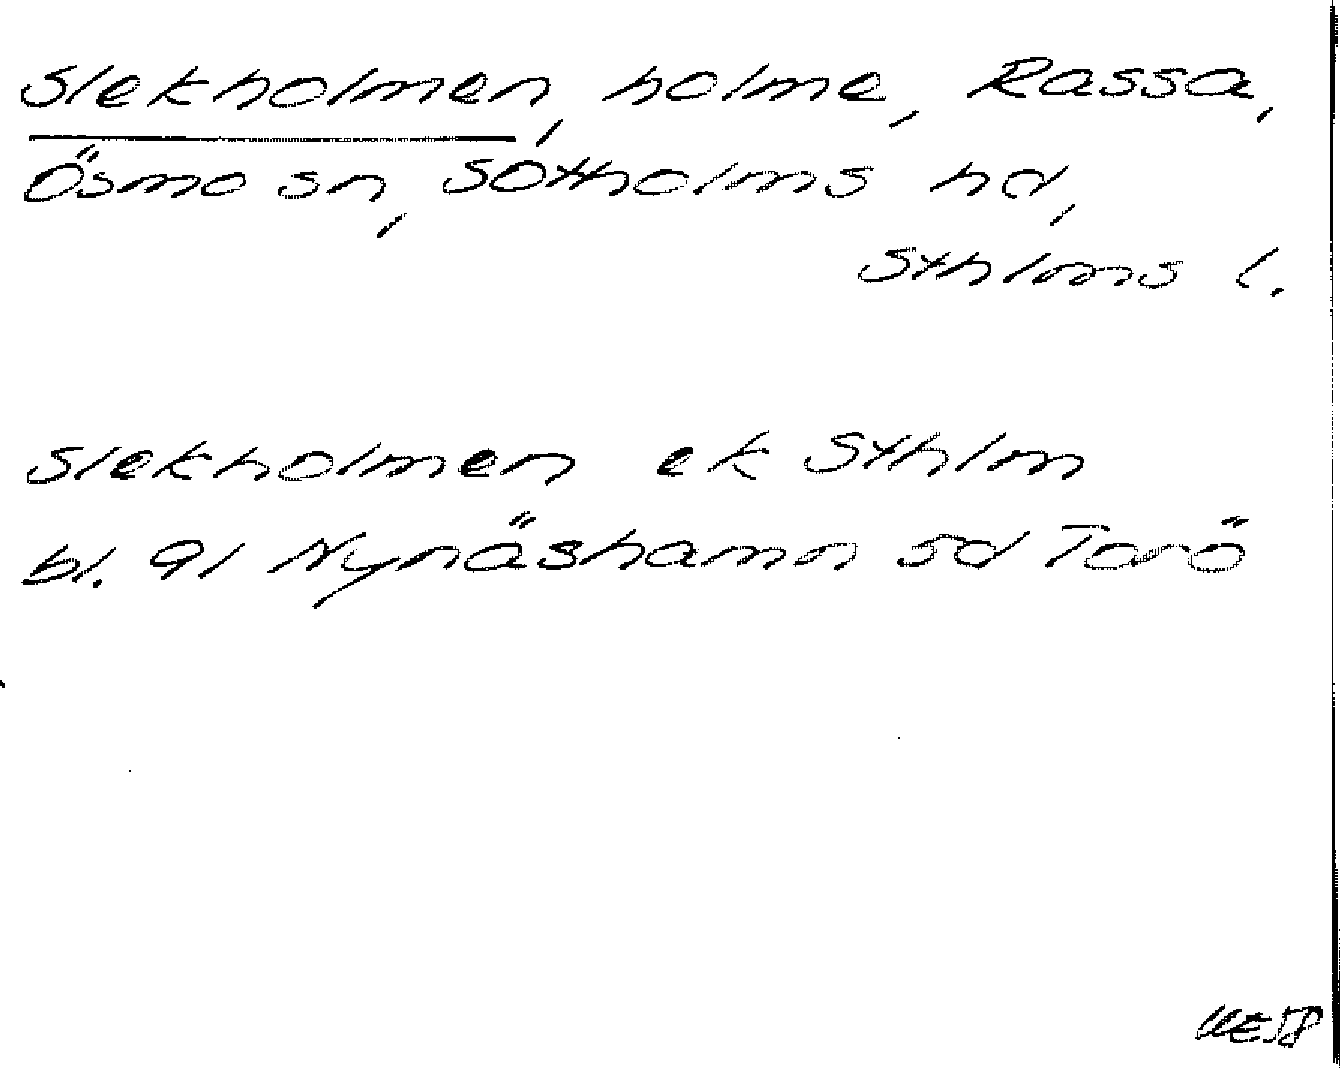 Slekholmen, holme, Rassa,
Ösmo sn, Sotholms hd,
Sthlms l.
Slekholmen ek Sthlm
bl. 91 Nynäshamn sd Torö